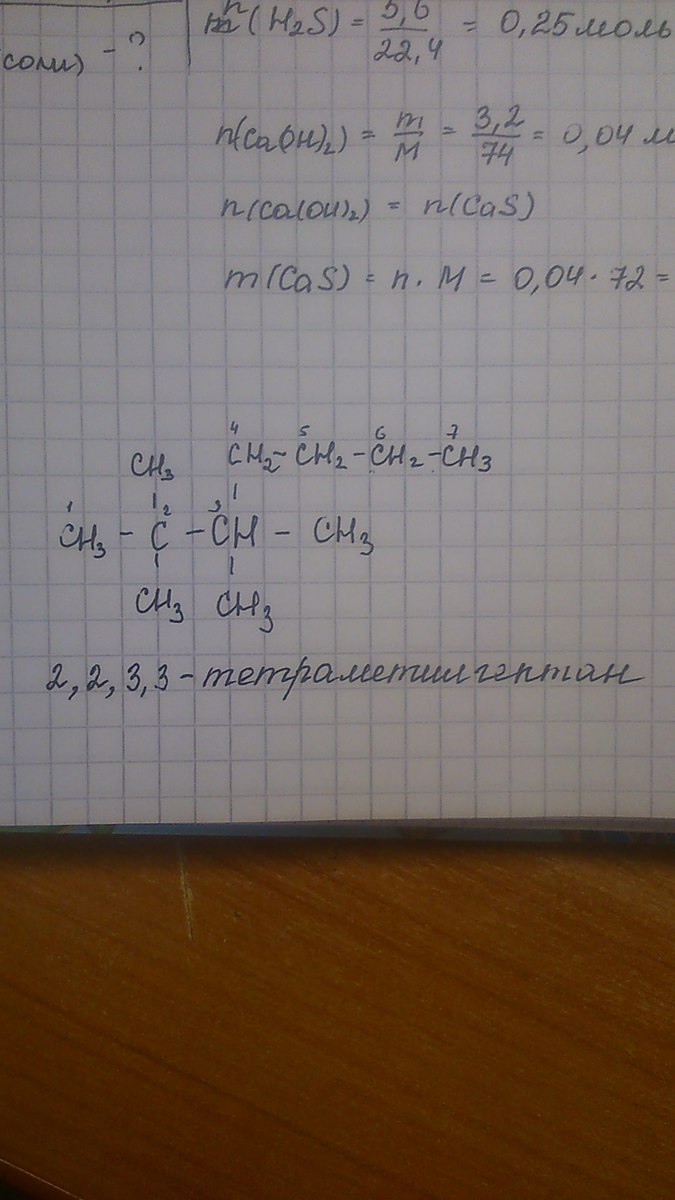 n(H2S) = 5,6/22,4 = 0,25 моль
соли) - ?
n(Ca(OH)2) = m/M = 3,2/74 = 0,04 м
n(Ca(OH)2) = n(CaS)
m(CaS) = n · M = 0,04 · 72 =
4 5 6 7
CH3 CH2 - CH2 - CH2 - CH3
1 2 3
CH3 - C - CH - CH3
CH3 CH3
2,2,3,3 - тетраметилгептан